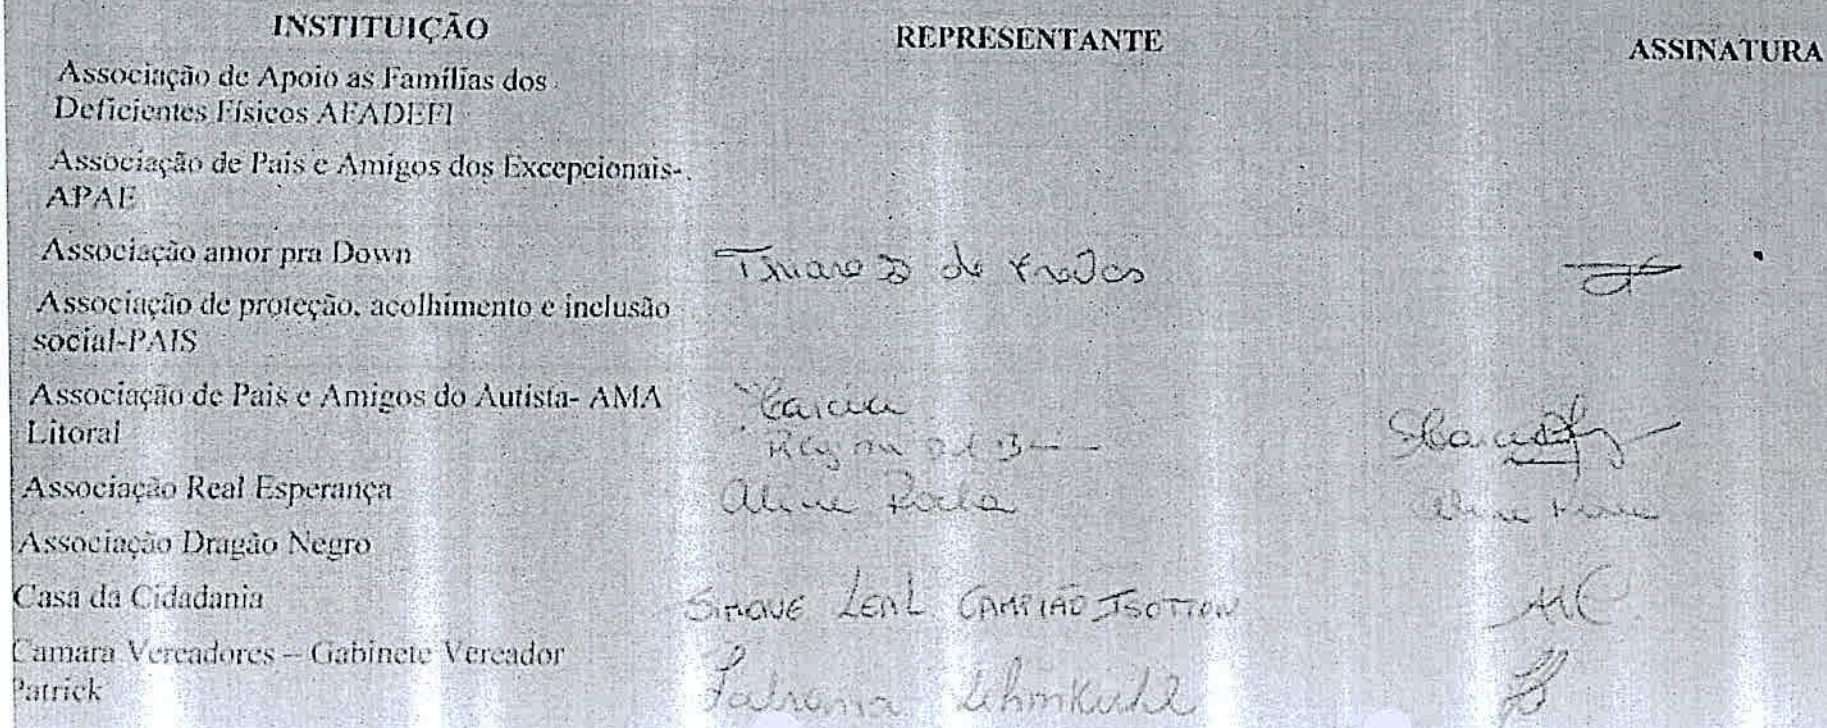 INSTITUIÇÃO REPRESENTANTE ASSINATURA
Associação de Apoio as Famílias dos
Deficientes Físicos AFADEFI
Associação de Pais e Amigos dos Excepcionais-
APAE
Associação amor pra Down de
Associação de proteção, acolhimento e inclusão
social-PAIS
Associação de Pais e Amigos do Autista- AMA
Litoral
Associação Real Esperança Aline
Associação Dragão Negro
Casa da Cidadania SIMONE LEAL CAMPIÃO ISOTTON
Camara Vereadores – Gabinete Vereador
Patrick Lehmkuhl